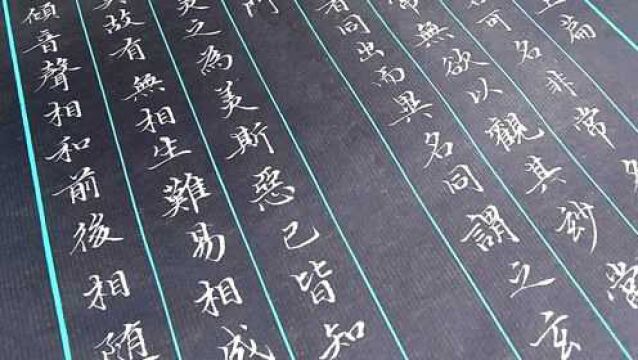 上篇
可名非常名
常無欲以觀其玅常
者同出而異名同謂之玄
門
美之為美斯惡已皆知
故有無相生難易相成
傾音聲相和前後相随